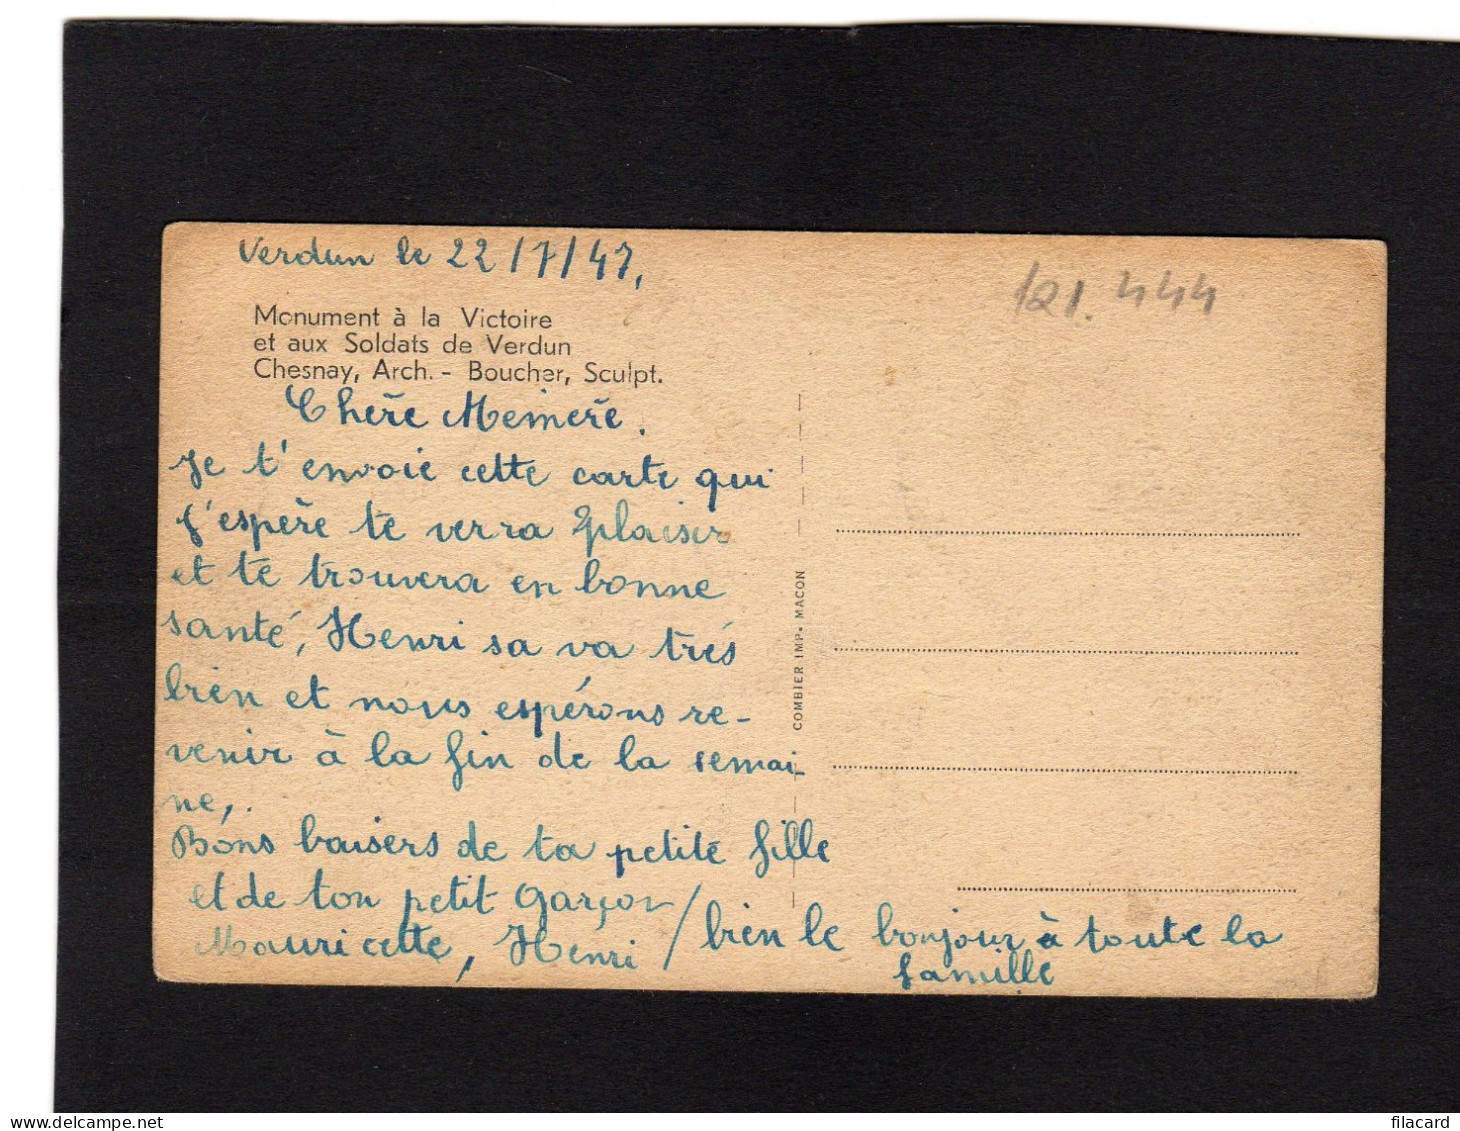 Verdun le 22/7/47,
121.444
Monument à la Victoire
et aux Soldats de Verdun
Chesnay, Arch. - Boucher, Sculpt.
Chère Memère.
Je t'envoie cette carte qui
j'espère te verra plaisir
et te trouvera en bonne
santé, Henri sa va trés
bien et nous espérons re-
venir à la fin de la semai-
ne,.
Bons baisers de ta petite fille
et de ton petit garçon
Mauricette, Henri / bien le bonjour à toute la
famille
COMBIER IMP. MACON
filacard